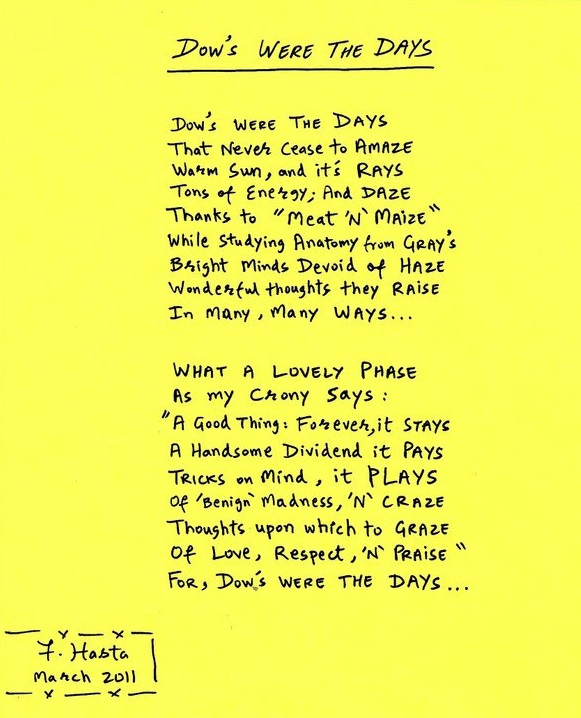 Dow's Were The Days
Dow's were The Days
That Never Cease to AMAZE
Warm Sun, and it's RAYS
Tons of Energy; And DAZE
Thanks to "Meat 'N' Maize"
While Studying Anatomy from GRAY's
Bright Minds Devoid of HAZE
Wonderful thoughts they RAISE
In Many, Many WAYS...
WHAT A LOVELY PHASE
As my Crony Says:
"A Good Thing: Forever, it STAYS
A Handsome Dividend it PAYS
TRICKS on Mind, it PLAYS
Of 'Benign' Madness, 'N' CRAZE
Thoughts upon which to GRAZE
Of Love, Respect, 'N' PRAISE"
FOR, DOW's WERE THE DAYS...
F. Hasta
March 2011